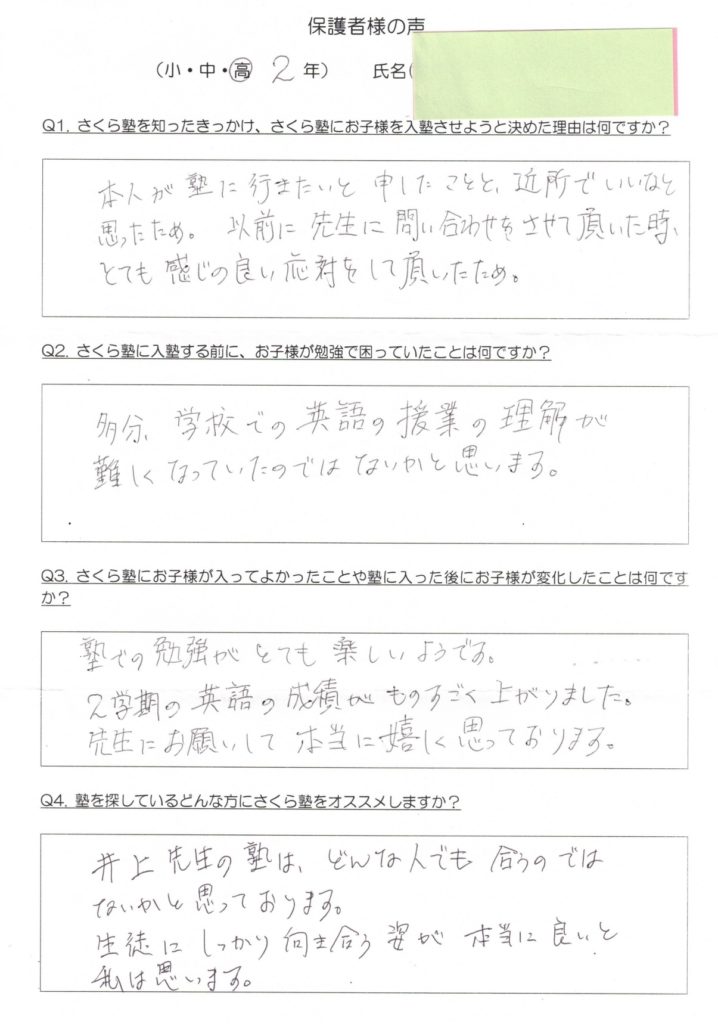 保護者様の声
（小・中・高 2 年） 氏名（
Q1. さくら塾を知ったきっかけ、さくら塾にお子様を入塾させようと決めた理由は何ですか？
本人が塾に行きたいと申したことと、近所でいいなと
思ったため。以前に先生に問い合わせをさせて頂いた時、
とても感じの良い応対をして頂いたため。
Q2. さくら塾に入塾する前に、お子様が勉強で困っていたことは何ですか？
多分、学校での英語の授業の理解が
難しくなっていたのではないかと思います。
Q3. さくら塾にお子様が入ってよかったことや塾に入った後にお子様が変化したことは何です
か？
塾での勉強がとても楽しいようです。
2学期の英語の成績がものすごく上がりました。
先生にお願いして本当に嬉しく思っております。
Q4. 塾を探しているどんな方にさくら塾をオススメしますか？
井上先生の塾は、どんな人でも合うのでは
ないかと思っております。
生徒にしっかり向き合う姿が本当に良いと
私は思います。